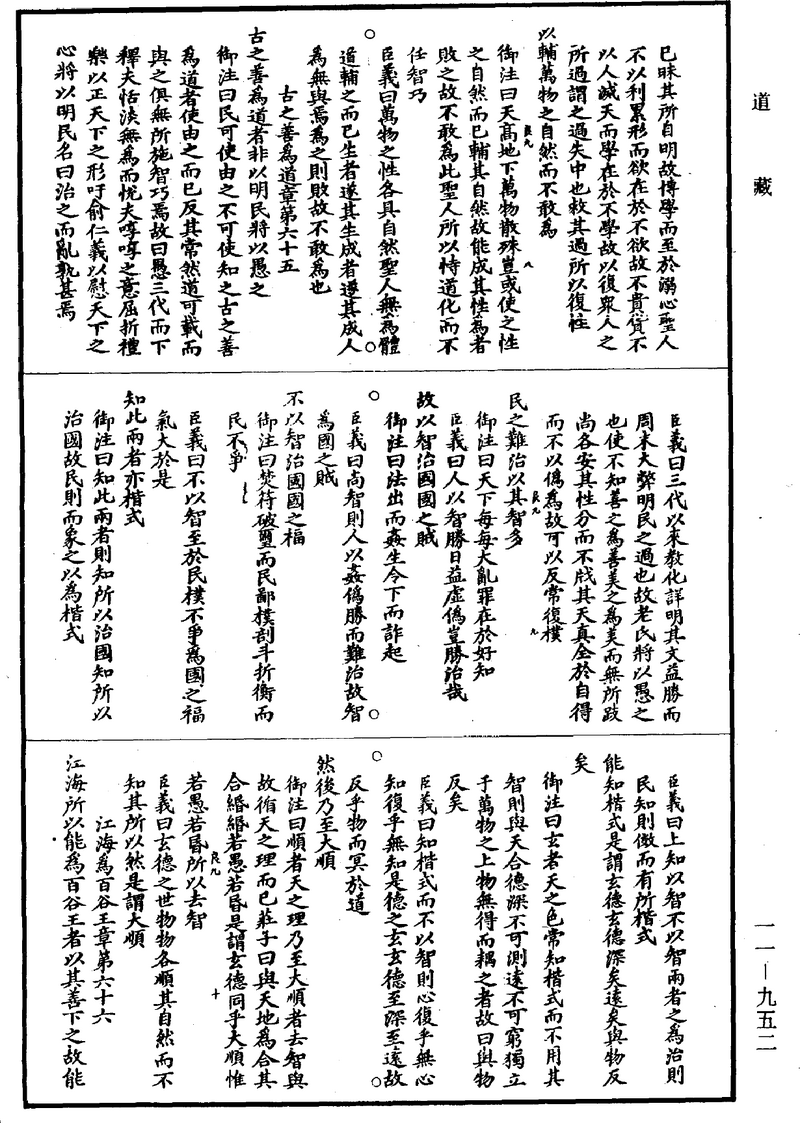 道藏
已昧其所自明故博學而至於溺心聖人
不以利累形而欲在於不欲故不貴貨不
以人滅天而學在於不學故以復衆人之
所過謂之過失中也救其過所以復性
以輔萬物之自然而不敢為
御注曰天高地下萬物散殊豈或使之性
之自然而已輔其自然故能成其性為者
敗之故不敢為此聖人所以恃道化而不
任智巧
臣義曰萬物之性各具自然聖人無為體
道輔之而已生者遂其生成者遂其成人
為無與焉為之則敗故不敢為也
古之善為道章第六十五
古之善為道者非以明民將以愚之
御注曰民可使由之不可使知之古之善
為道者使由之而已反其常然道可載而
與之俱無所施智巧焉故曰愚三代而下
釋夫恬淡無為而悅夫啍啍之意屈折禮
樂以正天下之形吁俞仁義以慰天下之
心將以明民名曰治之而亂孰甚焉
臣義曰三代以來教化詳明其文益勝而
周末大弊明民之過也故老氏將以愚之
也使不知善之為善美之為美而無所跂
尚各安其性分而不戕其天真全於自得
而不以僞為故可以反常復樸
民之難治以其智多
御注曰天下每每大亂罪在於好知
臣義曰人以智勝日益虛僞豈勝治哉
故以智治國國之賊
御注曰法出而姦生令下而詐起
臣義曰尚智則人以姦僞勝而難治故智
為國之賊
不以智治國國之福
御注曰焚符破璽而民鄙樸剖斗折衡而
民不爭
臣義曰不以智至於民樸不爭為國之福
氣大於是
知此兩者亦楷式
御注曰知此兩者則知所以治國知所以
治國故民則而象之以為楷式
臣義曰上知以智不以智兩者之為治則
民知則傚而有所楷式
能知楷式是謂玄德玄德深矣遠矣與物反
矣
御注曰玄者天之色常知楷式而不用其
智則與天合德深不可測遠不可窮獨立
于萬物之上物無得而耦之者故曰與物
反矣
臣義曰知楷式而不以智則心復乎無心
知復乎無知是德之玄玄德至深至遠故
反乎物而冥於道
然後乃至大順
御注曰順者天之理乃至大順者去智與
故循天之理而已莊子曰與天地為合其
合緡緡若愚若昏是謂玄德同乎大順惟
若愚若昏所以去智
臣義曰玄德之世物物各順其自然而不
知其所以然是謂大順
江海為百谷王章第六十六
江海所以能為百谷王者以其善下之故能
一一—九五二